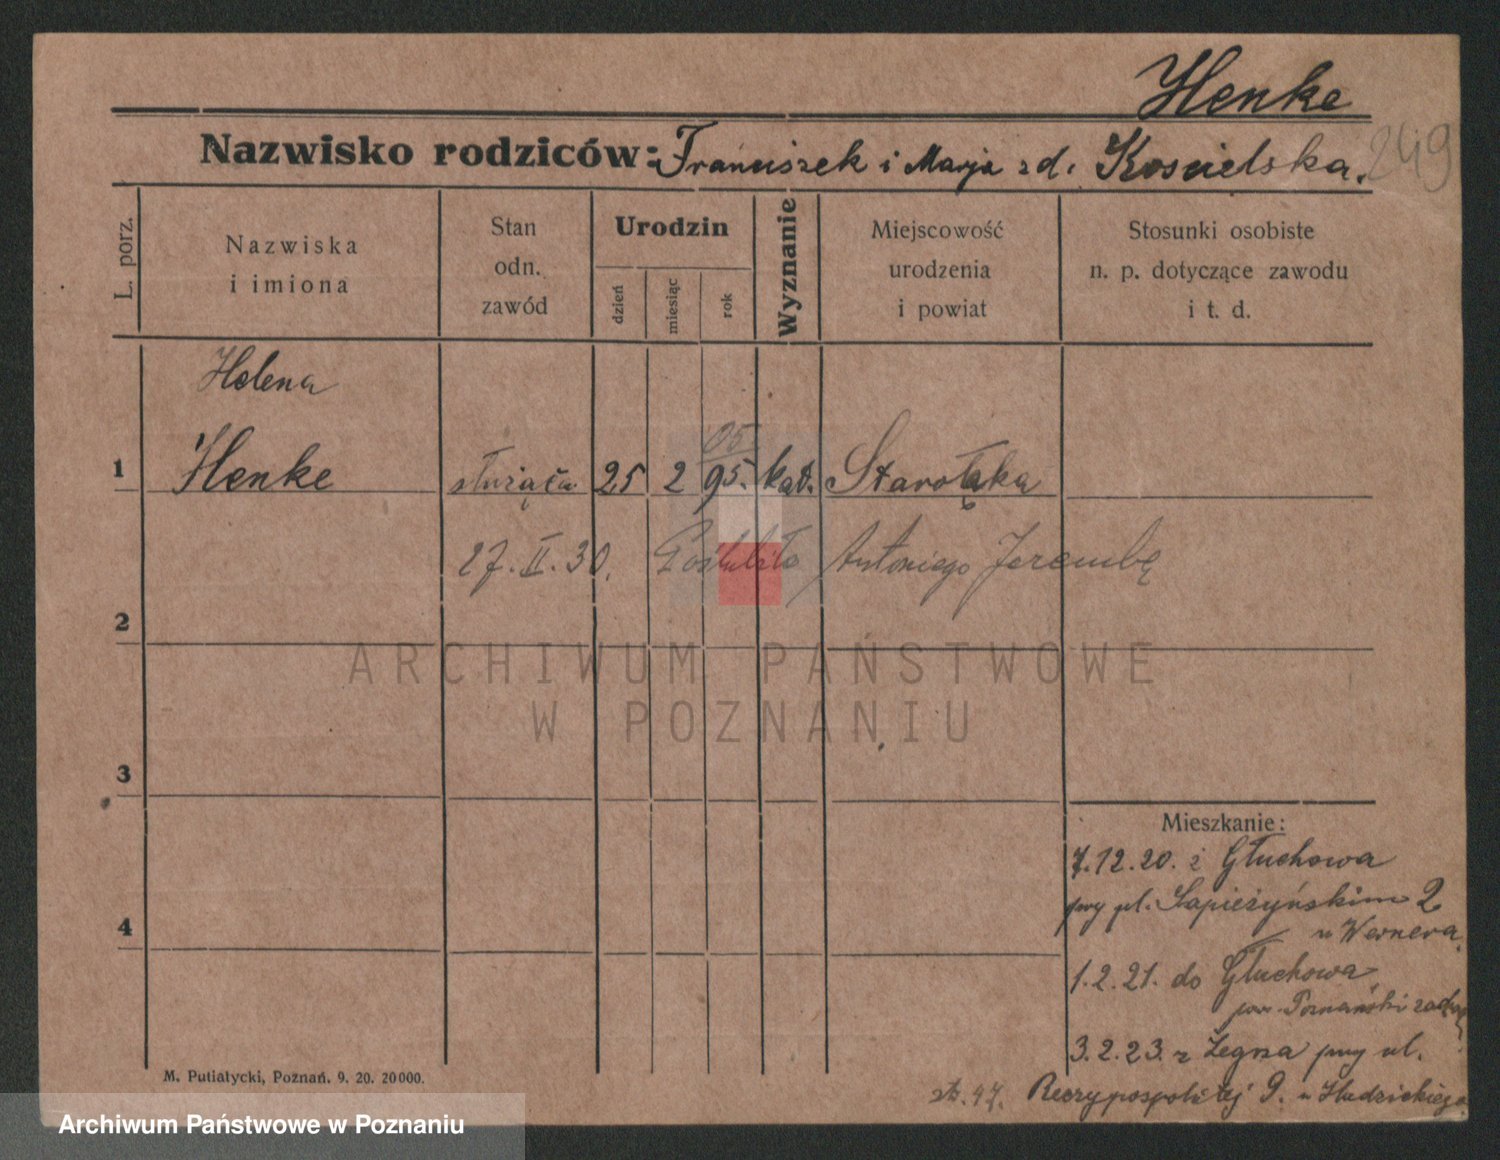 Henke
Nazwisko rodziców: Franciszek i Marja z d. Koscielska.
249
L. porz.
Nazwiska
i imiona
Stan
odn.
zawód
Urodzin
dzień
miesiąc
rok
Wyznanie
Miejscowość
urodzenia
i powiat
Stosunki osobiste
n. p. dotyczące zawodu
i t. d.
Helena
05
1 Henke służąca 25 2 95. kat. Starołęka
27. II. 30. Antoniego Jerembę
2
ARCHIWUM PAŃSTWOWE
W POZNANIU
3
Mieszkanie:
7.12.20. z Głuchowa
przy pl. Sapieżyńskim 2
u Wernera.
4
1.2.21. do Głuchowa
pow. Poznański
3.2.23. z Żegrza przy ul.
str. 47. Rzeczypospolitej 9. u Hudzickiego
M. Putiatycki, Poznań. 9. 20. 20000.
Archiwum Państwowe w Poznaniu